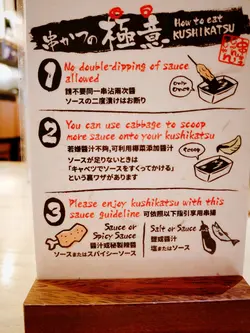 串かつの極意
How to eat
KUSHIKATSU
1 No double-dipping of sauce
allowed
請不要同一串沾兩次醬
ソースの二度漬けはお断り
Only
Once!
2 You can use cabbage to scoop
more sauce onto your kushikatsu
若嫌醬汁不夠,可利用椰菜添加醬汁
ソースが足りないときは
「キャベツでソースをすくってかける」
という裏ワザがあります
Scoop!
3 Please enjoy kushikatsu with this
sauce guideline 可依照以下指引享用串揚
Sauce or
Spicy Sauce
醬汁或秘製辣醬
ソースまたはスパイシーソース
Salt or Sauce
鹽或醬汁
塩またはソース